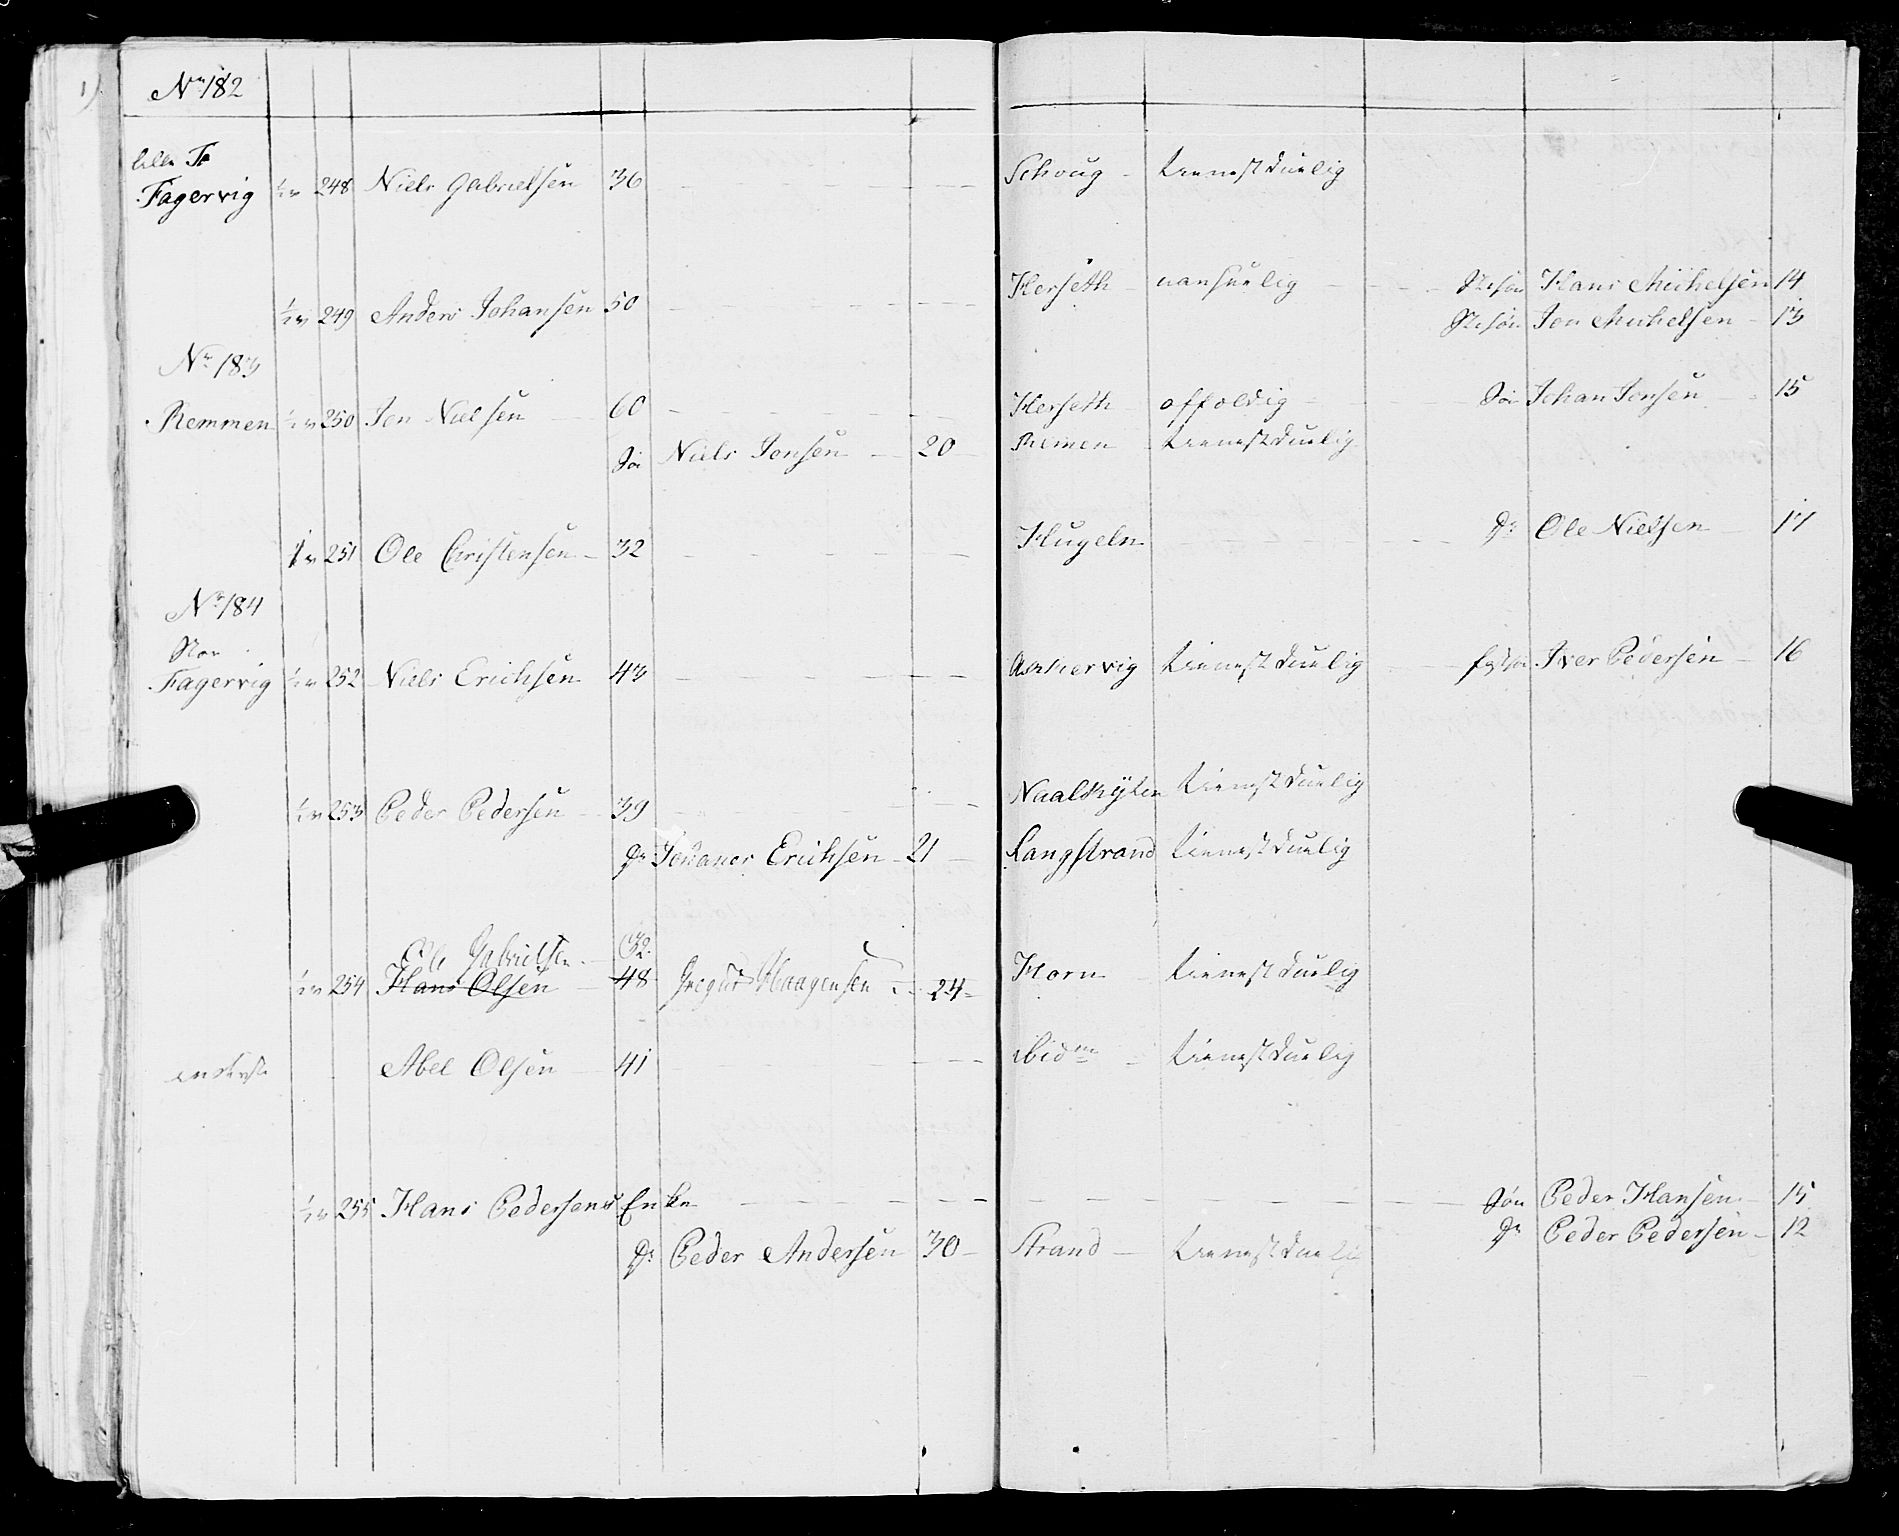 No 182
lille To
Fagervig ½ v 248 Niels Gabrielsen 36 Schoug tienestduelig
½ v 249 Anders Johansen 50 Herseth uansuelig Stesøn Hans Michelsen 14
Stesøn Jon Michelsen 13
Nr 183
Remmen ½ v 250 Jon Nielsen 60 Herseth affoldig Søn Johan Jonsen 15
Søn Niels Jonsen 20 Remen tienestduelig
1 v 251 Ole Christensen 32 Hugeln Dr Ole Nielsen 17
Nr 184
Stor
Fagervig ½ v 252 Niels Erichsen 43 Askervig tienestduelig Iver Pedersen 16
½ v 253 Peder Pedersen 39 tienestduelig
Dr Erichsen 21 Langstrand tienestduelig
Ole Gabrielsen 32
½ v 254 Hans Olsen 48 Haagensen 24 Horn tienestduelig
Abel Olsen 41 ibidm tienestduelig
½ v 255 Hans Pedersens Enke Søn Peder Hansen 15
Dr Peder Andersen 30 Strand tienestduelig Dr Peder Pedersen 12